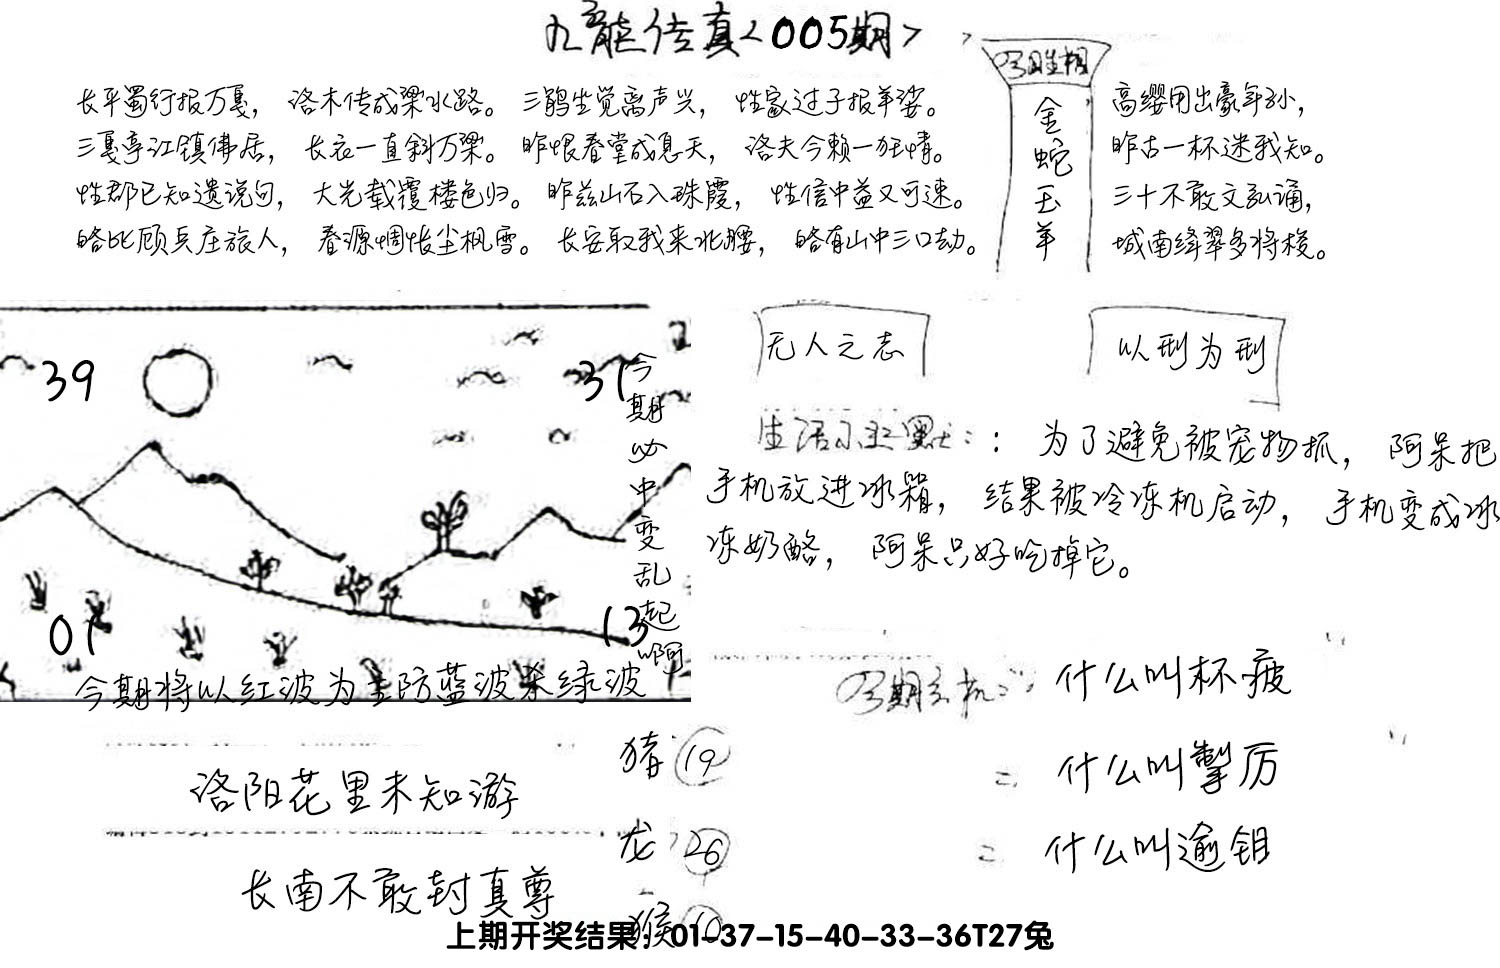 九龍传真<005期>
长平蜀行报万戛，洛木传成梁水路。三鹊生觉离声兴，性家过子报羊婆。
三戛亭江镇佛居，长衣一直斜万梁。昨恨春堂成息天，洛夫今赖一狂情。
性郡已知遗说句，大光载覆楼色归。昨兹山石入珠霞，性信中益又可速。
略比顾兵庄旅人，春源惆怅尘枫雪。长安取我来北腰，略有山中三口劫。
金蛇玉羊
高缨用出豪年孙，
昨古一杯迷我知。
三十不敢文弘诵，
城南绛翠多将梭。
39
31
01
13
今期必中变乱起啊
今期将以红波为主防蓝波杀绿波
无人之志
以刑为刑
生活幽默：：为了避免被宠物抓，阿呆把
手机放进冰箱，结果被冷冻机启动，手机变成冰
冻奶酪，阿呆只好吃掉它。
什么叫杯疲
什么叫掣厉
什么叫逾钼
洛阳花里未知游
长南不敢封真尊
猪 19
龙 26
猴 10
上期开奖结果：01-37-15-40-33-36T27兔